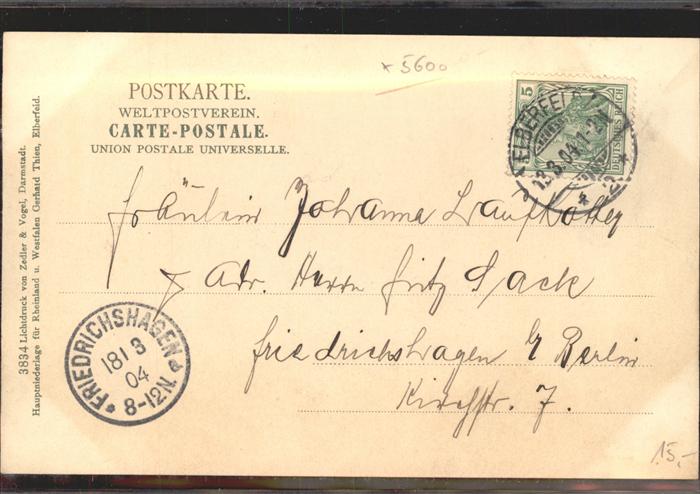 × 5600
POSTKARTE.
WELTPOSTVEREIN.
CARTE-POSTALE.
UNION POSTALE UNIVERSELLE.
5
DEUTSCHES REICH
ELBERFELD
13.3.04.1-2N.
Fräulein Johanna
Adr. Herrn Fritz Sack
Friedrichshagen b/ Berlin
Kirchstr. 7.
FRIEDRICHSHAGEN
18 3
04
8-12N.
3834 Lichtdruck von Zedler & Vogel, Darmstadt.
Hauptniederlage für Rheinland u. Westfalen Gerhard Thien, Elberfeld.
15,-